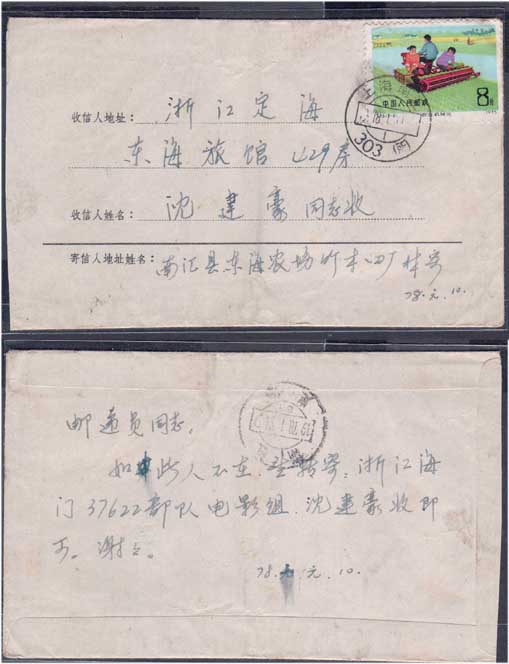 中国人民邮政
8分
上海南
303 (門)
收信人地址： 浙江定海
东海旅馆 429房
收信人姓名： 沈建豪 同志收
寄信人地址姓名： 南汇县东海农场竹木四厂林寄
78.元.10.
邮递员同志，
如此人不在，望转寄：浙江海
门37622部队电影组，沈建豪收即
可。谢谢。
78.元.10.